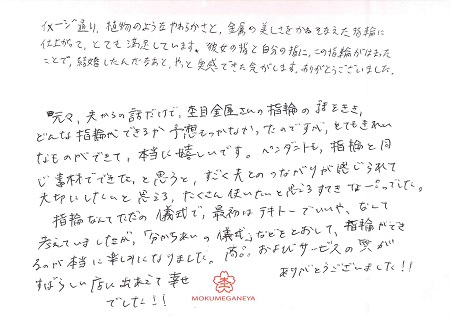 イメージ通り、植物のようなやわらかさと、金属の美しさをかねそなえた指輪に
仕上がって、とても満足しています。彼女の指と自分の指に、この指輪がはまった
ことで、結婚したんだなあと、やっと実感できた気がします。ありがとうございました。
元々、夫からの話だけで、杢目金屋さんの指輪の話をきき、
どんな指輪ができるか予想もつかなかったのですが、とてもきれい
なものができて、本当に嬉しいです。ペンダントも、指輪と同
じ素材でできた、と思うと、すごく夫とのつながりが感じられて
大切にしたいと思える、たくさん使いたいと思えるすてきな一つでした。
指輪なんてただの儀式で、最初はテキトーでいいや、なんて
考えていましたが、「分かち合いの儀式」などをとおして、指輪ができ
るのが本当に楽しみになりました。商品およびサービスの質が
すばらしい店に出会えて幸せ
でした!!
ありがとうございました!!
MOKUMEGANEYA